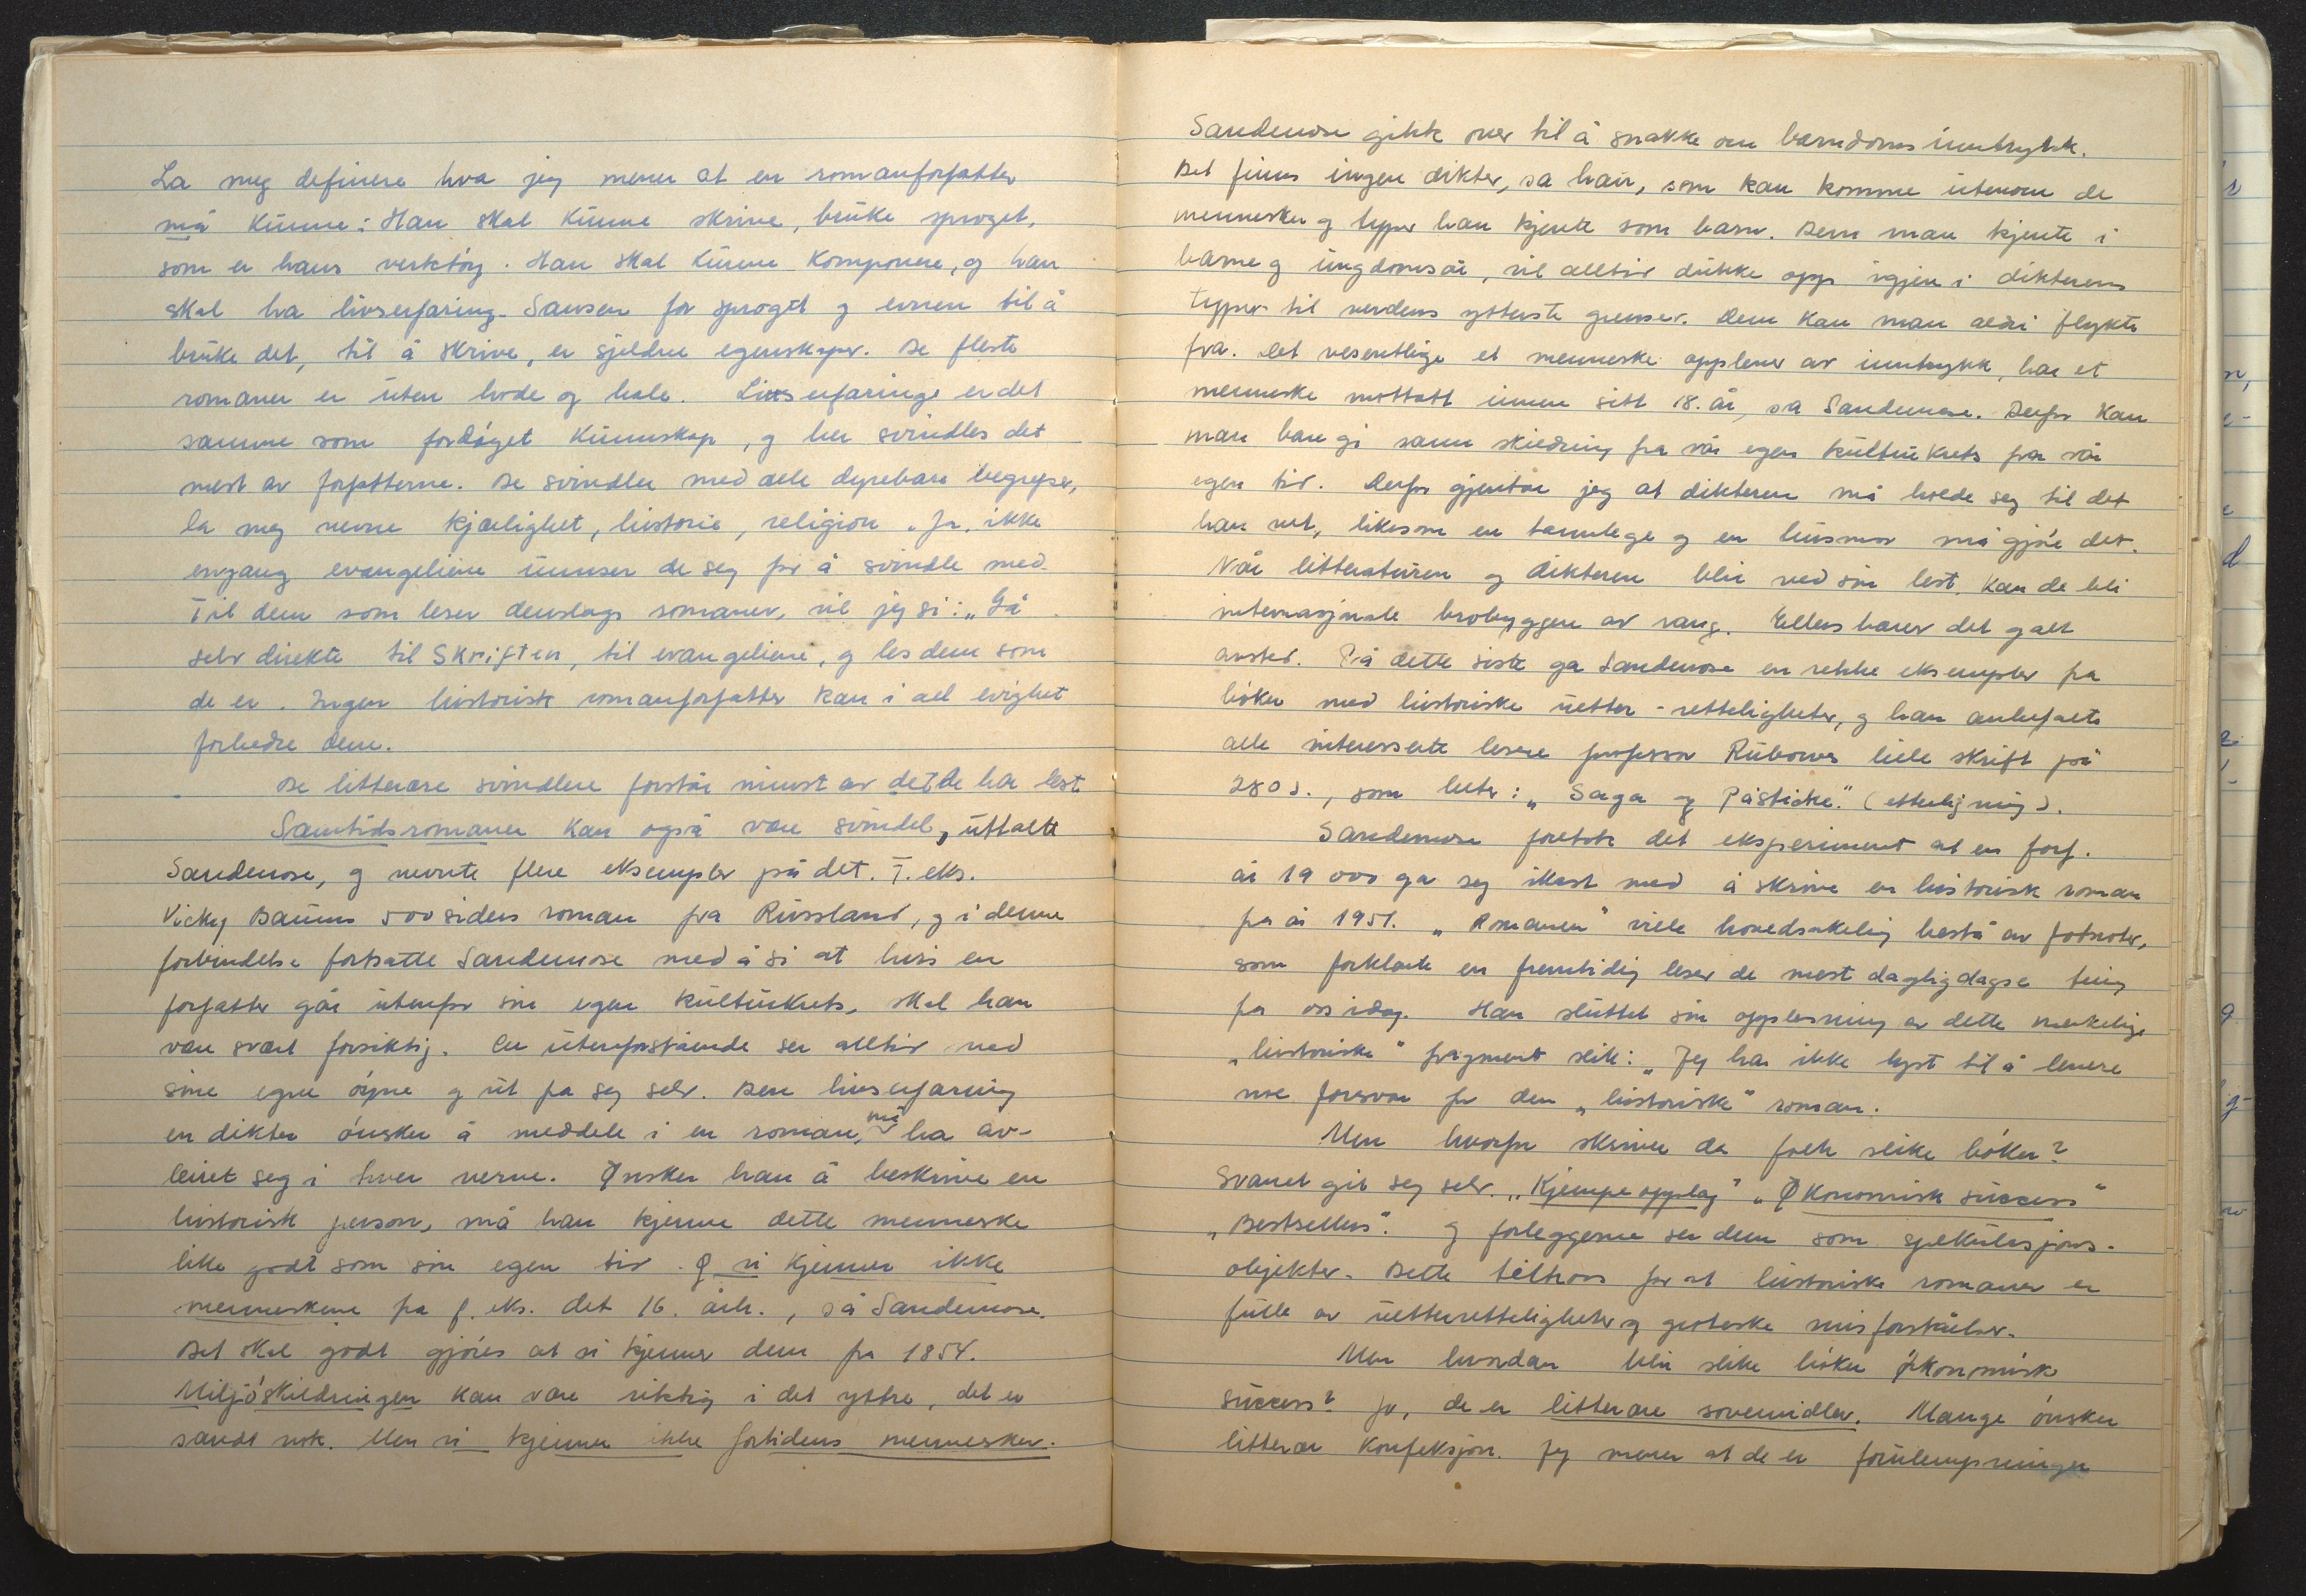 La meg definere hva jeg mener at en romanforfatter
må kunne: Han skal kunne skrive, bruke sproget,
som er hans verktöy. Han skal kunne komponere, og han
skal ha livserfaring. Sansen for sproget og evnen til å
bruke det, til å skrive, er sjeldne egenskaper. De fleste
romaner er uten hode og hale. Livserfaringe er det
samme som fordöyet kunnskap, og her svindles det
mest av forfatterne. De svindler med alle dyrebare begreper,
la meg nevne kjærlighet, historie, religion. Ja, ikke
engang evangeliene unnser de seg for å svindle med.
Til dem som leser denslags romaner, vil jeg si: „Gå
selv direkte til Skriften, til evangeliene, og les dem som
de er. Ingen historisk romanforfatter kan i all evighet
forbedre dem.
De litterære svindlere forstår minst av det de har lest.
Samtidsromaner kan også være svindel, uttalte
Sandemose, og nevnte flere eksempler på det. T. eks.
Vicky Baums 500 siders roman fra Russland, og i denne
forbindelse fortsatte Sandemose med å si at hvis en
forfatter går utenfor sin egen kulturkrets, skal han
være svært forsiktig. En utenforstående ser alltid med
sine egne öyne og ut fra seg selv. Den livserfaring
en dikter önsker å meddele i en roman, må ha av-
leiret seg i hver nerve. Ønsker han å beskrive en
historisk person, må han kjenne dette menneske
like godt som sin egen tid. Og vi kjenner ikke
menneskene fra f. eks. det 16. årh., sa Sandemose.
Det skal godt gjöres at vi kjenner dem fra 1854.
Miljöskildringen kan være riktig i det yttre, det er
sandt nok. Men vi kjenner ikke fortidens mennesker.
Sandemose gikk over til å snakke om barndoms inntrykk.
Det finns ingen dikter, sa han, som kan komme utenom de
mennesker og typer han kjente som barn. Dem man kjente i
barne og ungdomsår, vil alltid dukke opp igjen i dikterens
typer til verdens ytterste grenser. Dem kan man aldri flykte
fra. Det vesentlige et menneske opplever av inntrykk, har et
menneske mottatt innen sitt 18. år, sa Sandemose. Derfor kan
man bare gi sann skildring fra vår egen kulturkrets fra vår
egen tid. Derfor gjentar jeg at dikteren må holde seg til det
han vet, likesom en tannlege og en husmor må gjöre det.
Når litteraturen og dikteren blir ved sin lest, kan de bli
internasjonale brobyggere av rang. Ellers bærer det galt
avsted. På dette siste ga Sandemose en rekke eksempler fra
böker med historiske uetter-retteligheter, og han anbefalte
alle interesserte lesere professor Rubows lille skrift på
280 s., som heter: „Saga og Pastiche." (etterligning).
Sandemose foretok det eksperiment at en forf.
år 19 000 ga seg ikast med å skrive en historisk roman
fra år 1951. „Romanen" ville hovedsakelig bestå av fotnoter,
som forklarte en fremtidig leser de mest dagligdagse ting
fra oss idag. Han sluttet sin opplesning av dette merkelige
„historiske" fragment slik: „Jeg har ikke lyst til å levere
noe forsvar for den „historiske" roman.
Men hvorfor skriver da folk slike böker?
Svaret gir seg selv. „Kjempeopplag" „Økonomisk success"
„Bestsellers". Og forleggerne ser dem som spekulasjons-
objekter. Dette tiltross for at historiske romaner er
fulle av uetterretteligheter og groteske misforståelser.
Men hvordan blir slike böker økonomisk
success? Jo, de er litterære sovemidler. Mange önsker
litterær konfeksjon. Jeg mener at de er forulempninger